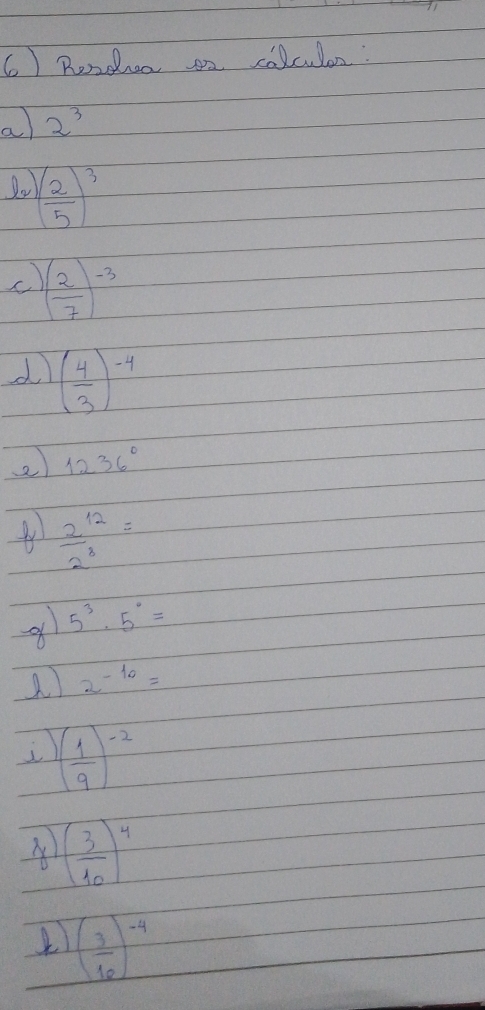 6) Resolva os cálculos:
a) 2³
b) (2/5)³
c) (2/7)⁻³
d) (4/3)⁻⁴
e) 1236⁰
f) 2¹²/2⁸ =
g) 5³ . 5⁰ =
h) 2⁻¹⁰ =
i) (1/9)⁻²
j) (3/10)⁴
k) (3/10)⁻⁴